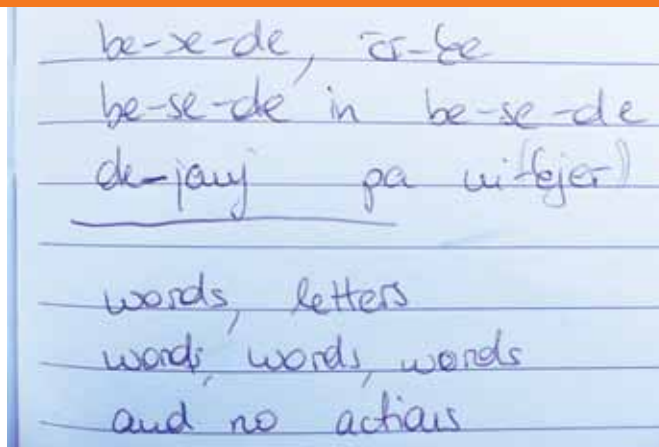 be-se-de, čr-ke
be-se-de in be-se-de
de-janj pa ni-(kjer)
words, letters
words, words, words
and no actions